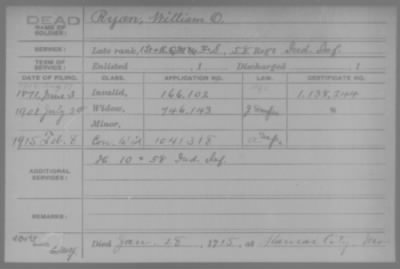 DEAD
NAME OF SOLDIER: Ryan, William O.
SERVICE: Late rank, 58 Reg't Ind. Inf.
TERM OF SERVICE: Enlisted , 1 Discharged , 1
DATE OF FILING. CLASS. APPLICATION NO. LAW. CERTIFICATE NO.
1872, June 3 Invalid, 166,102 1,138,244
1901 July 20 Widow, 746,143
Minor,
1915 Feb. 8 Con. Wid 1041318
ADDITIONAL SERVICES: 10 + 58 Ind. Inf.
REMARKS:
Died Jan. 28, 1915, at Kansas City Mo